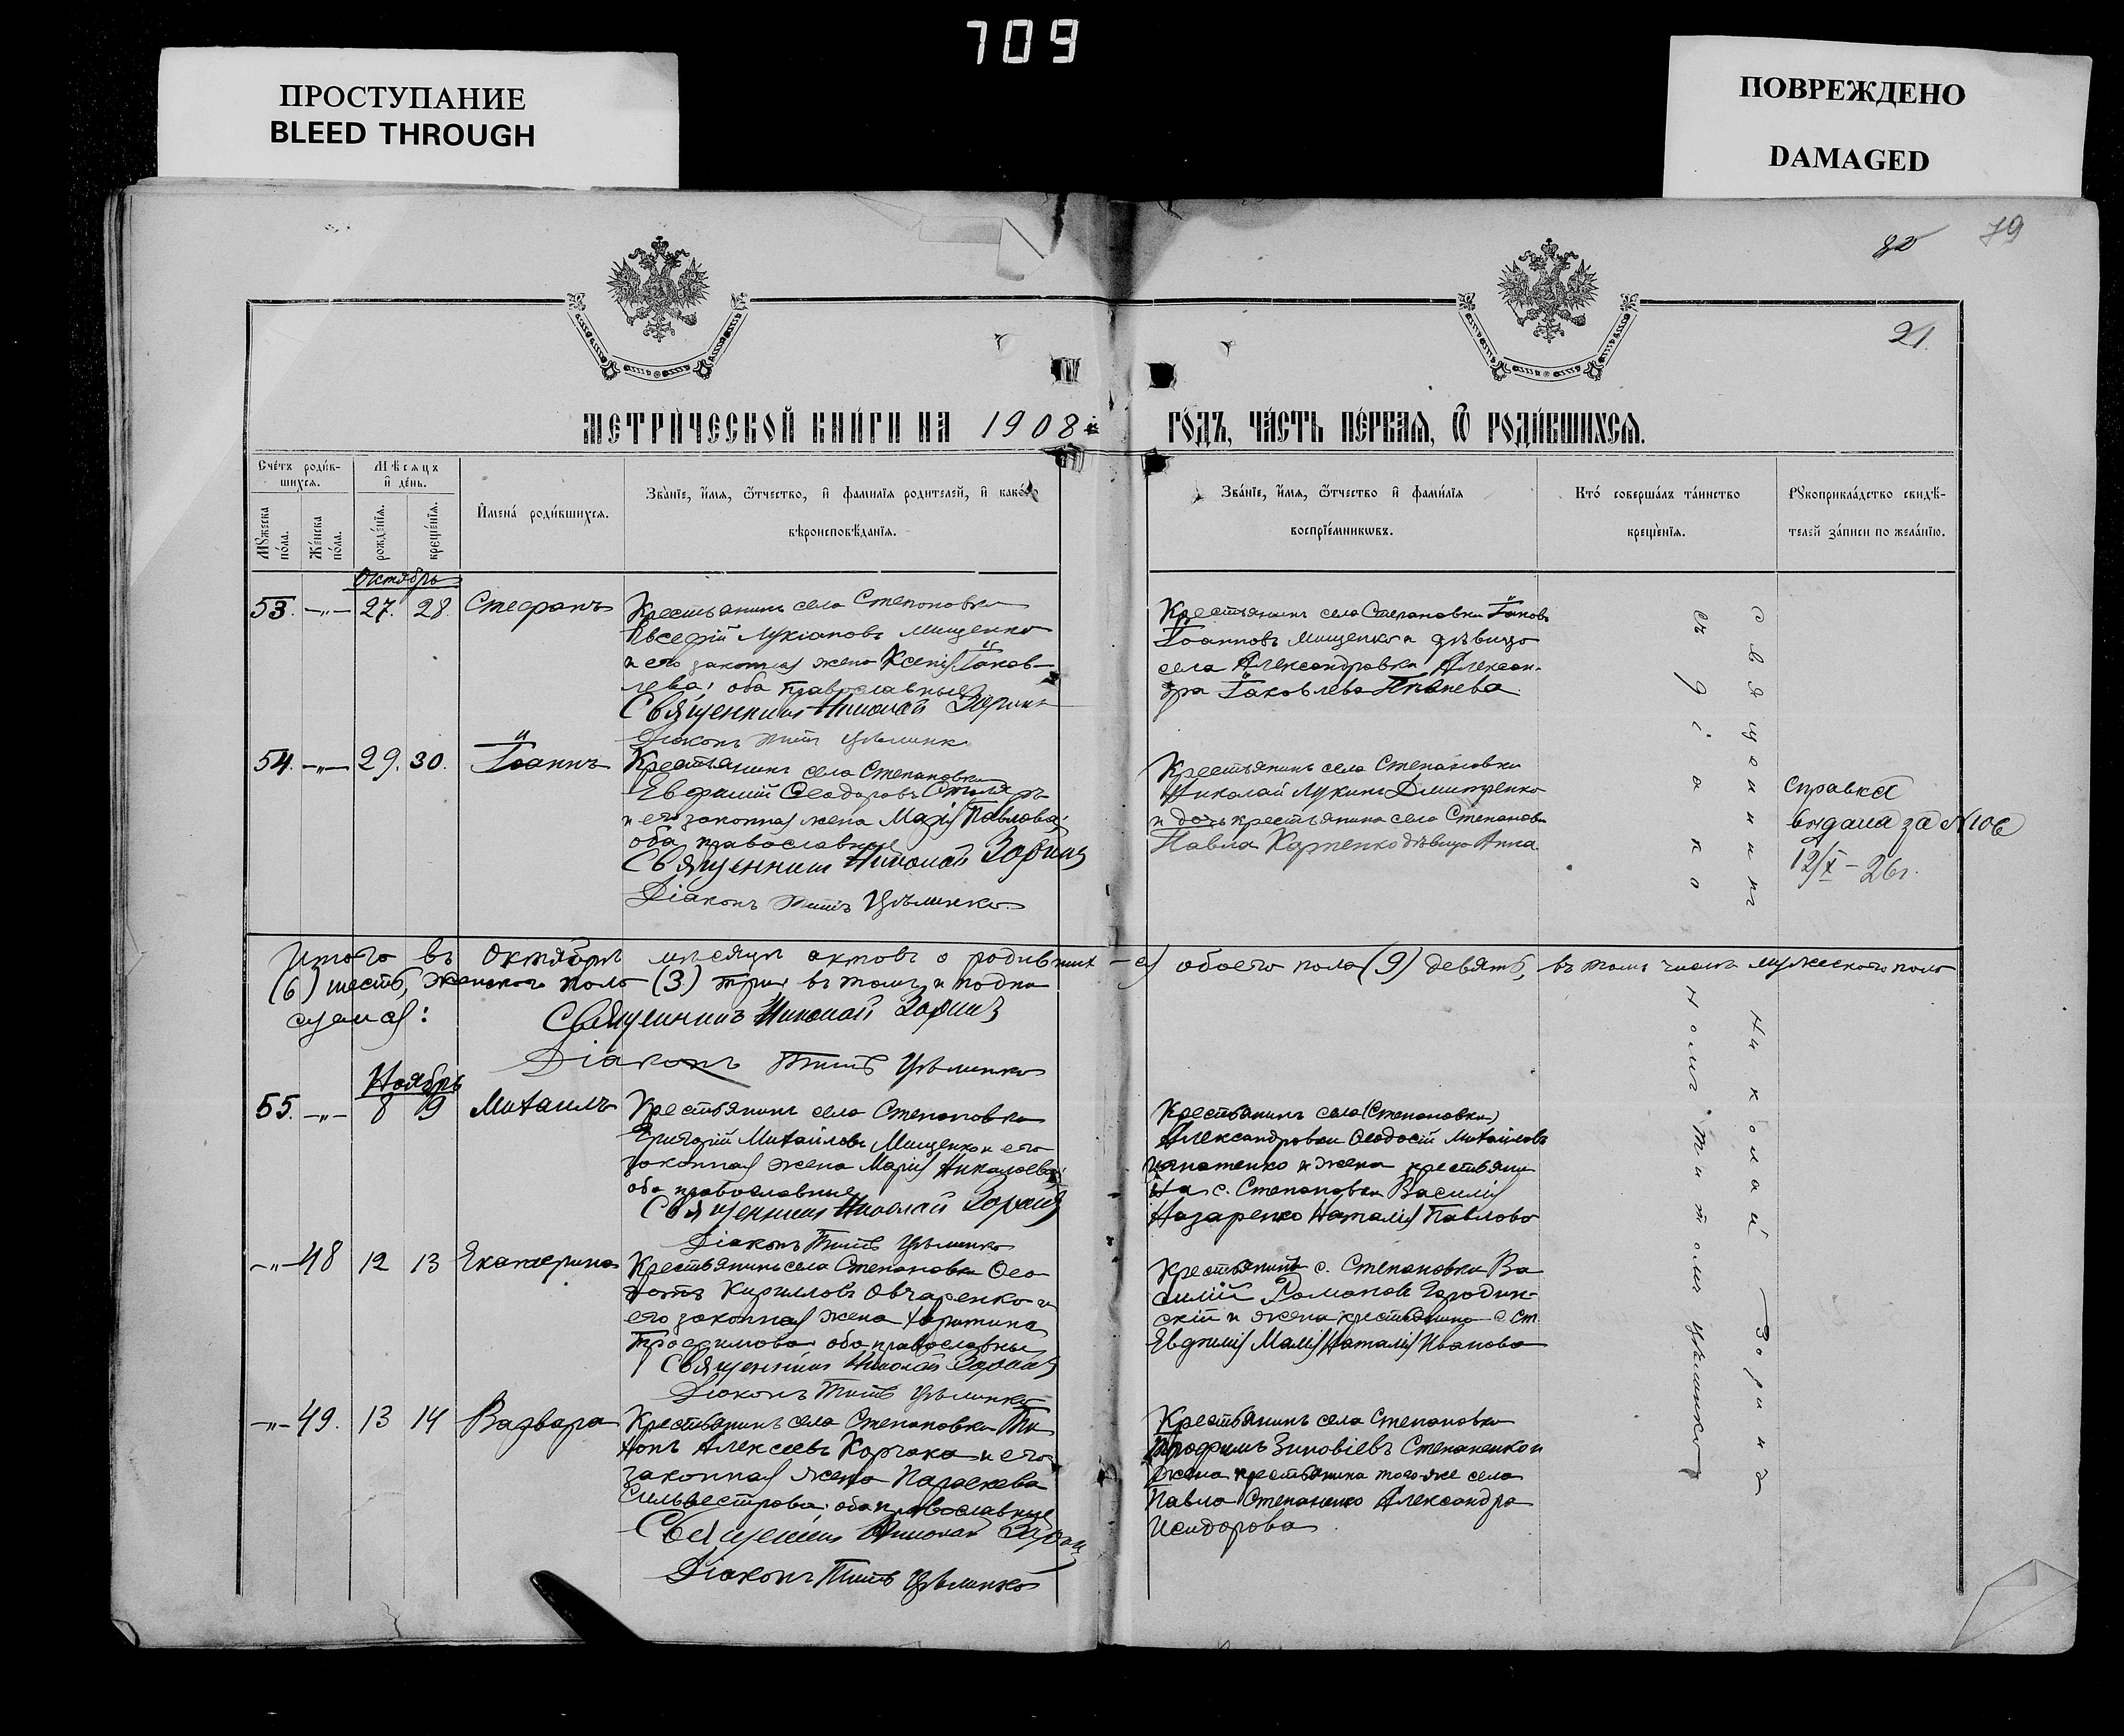 709
ПРОСТУПАНИЕ
BLEED THROUGH
ПОВРЕЖДЕНО
DAMAGED
79
80
21.
МЕТРИ́ЧЕСКОЙ КНИ́ГИ НА 1908
ГО́ДЪ, ЧА́СТЬ ПЕ́РВАѦ, Ѿ РОДИ́ВШИХСѦ.
Сче́тъ роди́в-
шихсѧ.
Мѣ́сѧцъ
и҆ де́нь.
Мꙋ́жеска
по́ла.
Же́нска
по́ла.
рожде́нїѧ.
креще́нїѧ.
И҆мена̀ роди́вшихсѧ.
Зва́нїе, и҆́мѧ, ѻ҆́тчество, и҆ фами́лїѧ роди́телей, и҆ како́гѡ
вѣроисповѣ́данїѧ.
Зва́нїе, и҆́мѧ, ѻ҆́тчество и҆ фами́лїѧ
воспрїе́мникѡвъ.
Кто̀ соверша́лъ та́инство
креще́нїѧ.
Рꙋкоприкла́дство свидѣ́-
телей за́писи по жела́нїю.
Октябрь
53. —„— 27. 28. Стефанъ
Крестьянинъ села Степановки
Евсефій Лукіановъ Мищенко
и его законная жена Ксенія Іаков-
лева; оба православные
Священникъ Николай Зоринъ
Діаконъ Титъ Цѣлинко
Крестьянинъ села Степановки Іаковъ
Іоанновъ Мищенко и дѣвица
села Александровки Алексан-
дра Іаковлева
54. —„— 29. 30. Іоаннъ
Крестьянинъ села Степановки
Евфимій Ѳеодоровъ Столяръ
и его законная жена Марія Павлова;
оба православные
Священникъ Николай Зоринъ
Діаконъ Титъ Цѣлинко
Крестьянинъ села Степановки
Николай Лукинъ Дмитренко
и дочь крестьянина села Степановки
Павла Карпенко дѣвица Анна
справка
выдана за №106
12/X – 26 г.
Итого въ Октябрѣ мѣсяцѣ актовъ о родившихся обоего пола (9) девять, въ томъ числѣ мужескаго пола
(6) шесть, женскаго пола (3) три въ томъ и подпи
суемся:
Священникъ Николай Зоринъ
Діаконъ Титъ Цѣлинко
Ноябрь
55. —„— 8 9 Михаилъ
Крестьянинъ села Степановки
Григорій Михайловъ Мищенко и его
законная жена Марія Николаева;
оба православные
Священникъ Николай Зоринъ
Діаконъ Титъ Цѣлинко
Крестьянинъ села (Степановки)
Александровки Ѳеодосій Михайловъ
Игнатенко и жена крестьяни
на с. Степановки Василія
Назаренко Наталія Павлова
—„— 48 12 13 Екатерина
Крестьянинъ села Степановки Ѳео
Кирилловъ Овчаренко и
его законная жена Харитина
Трофимова оба православны
Священникъ Николай Зоринъ
Діаконъ Титъ Цѣлинко
Крестьянинъ с. Степановки Ва
силій Романовъ Городин-
скій и жена крестьянина с. Ст.
Наталія Иванова
—„— 49. 13 14 Варвара
Крестьянинъ села Степановки Ти
хонъ Алексеевъ Корчака и его
законная жена Параскева
Сильвестрова; оба православные
Священникъ Николай Зоринъ
Діаконъ Титъ Цѣлинко
Крестьянинъ села Степановки
Трофимъ Зиновіевъ Степаненко и
жена крестьянина того-же села
Павла Степаненко Александра
Исидорова
Священникъ Николай Зоринъ
съ діакономъ Титомъ Цѣлинко